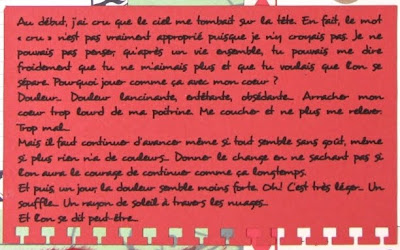 Au début, j'ai cru que le ciel me tombait sur la tête. En fait, le mot
« cru » n'est pas vraiment approprié puisque je n'y croyais pas. Je ne
pouvais pas penser, qu'après un vie ensemble, tu pouvais me dire
froidement que tu ne m'aimais plus et que tu voulais que l'on se
sépare. Pourquoi jouer comme ça avec mon coeur ?
Douleur... Douleur lancinante, entêtante, obsédante... Arracher mon
coeur trop lourd de ma poitrine. Me coucher et ne plus me relever.
Trop mal...
Mais il faut continuer d'avancer même si tout semble sans goût, même
si plus rien n'a de couleurs... Donner le change en ne sachant pas si
l'on aura le courage de continuer comme ça longtemps.
Et puis, un jour, la douleur semble moins forte. Oh! C'est très léger... Un
souffle... Un rayon de soleil à travers les nuages...
Et l'on se dit peut-être...